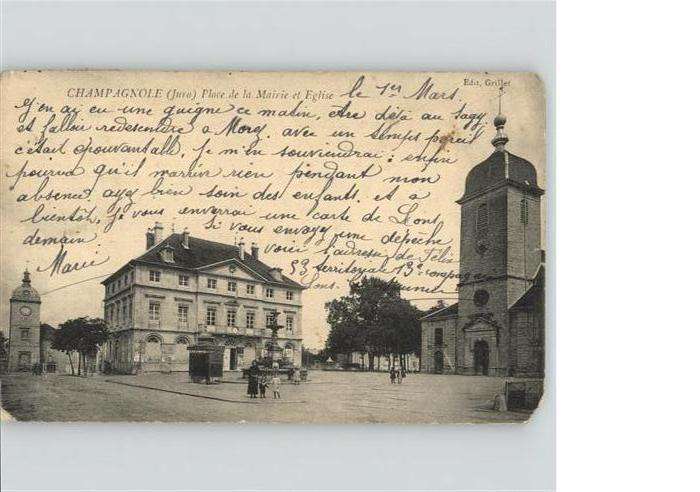 Edit. Grillet
CHAMPAGNOLE (Jura) Place de la Mairie et Eglise
le 1er Mars.
J'en ai eu une guigne ce matin, être déjà au
et fallu redescendre a Morez avec un temps pareil
c'était épouvantable, je m'en souviendrai; enfin
pourvu qu'il n'arrive rien pendant mon
absence, ayez bien soin des enfants, et a
bientôt, Je vous enverrai une carte de Lons
demain
Si vous envoyez une dépêche
Marie
voici l'adresse de Félix
53 territoriale 13e compagnie
Lons.